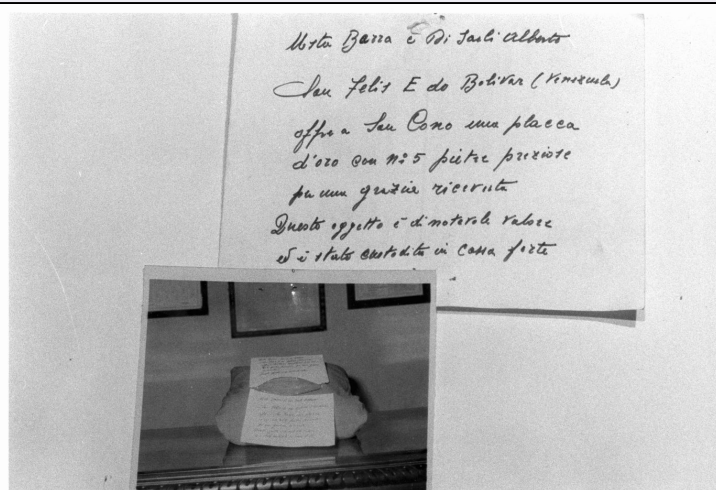 Barra e Di Sarli Alberto
San Felis E do Bolivar (Venezuela)
offre a San Cono una placca
d'oro con n° 5 pietre preziose
per una grazia ricevuta
Questo oggetto è di notevole valore
ed è stato custodito in cassa forte